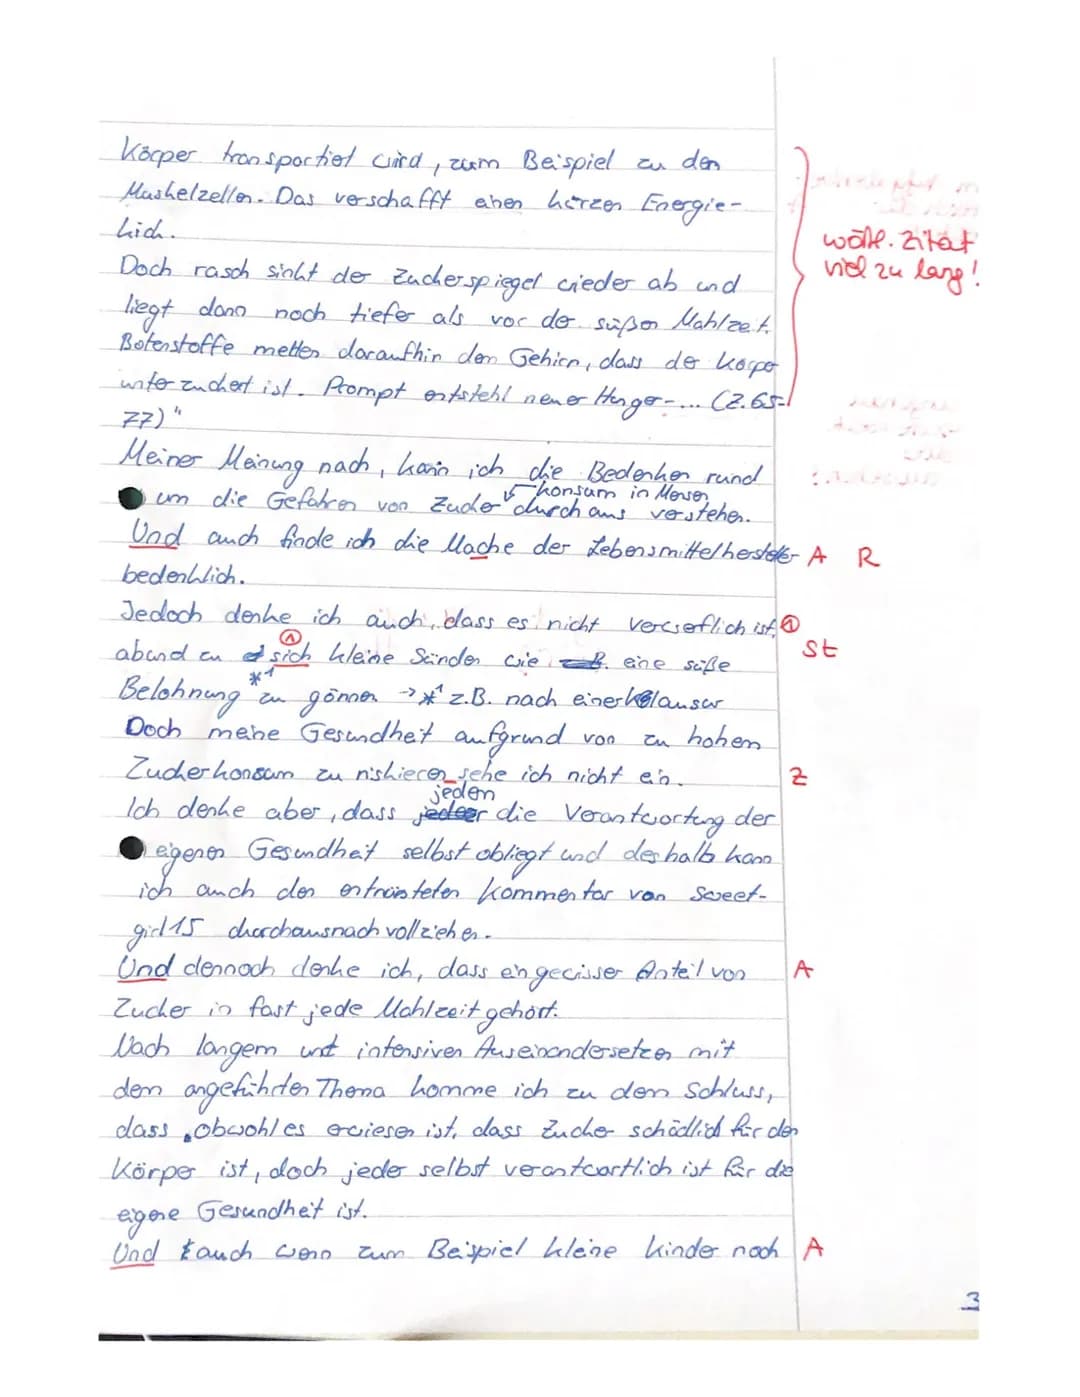 Körper transportiert wird, zum Beispiel zu den
Muskelzellen. Das verschafft einen kurzen Energie-
kick.
wörtl. Zitat
viel zu lang!
Doch rasch sinkt der Zuckerspiegel wieder ab und
liegt dann noch tiefer als vor der süßen Mahlzeit.
Botenstoffe melden daraufhin dem Gehirn, dass der Körper
unterzuckert ist. Prompt entsteht neuer Hunger-... (Z.65-
77)"
Meiner Meinung nach, kann ich die Bedenken rund
um die Gefahren von Zuckerkonsum in Massen durchaus verstehen.
Und auch finde ich die Mache der Lebensmittelhersteller A R
bedenklich.
Jedoch denke ich auch, dass es nicht verwerflich ist, ①
abund zu sich ① kleine Sünden wie eine süße St
Belohnung *1 zu gönnen → *1 z.B. nach einer Klausur
Doch meine Gesundheit aufgrund von zu hohem
Zuckerkonsum zu riskieren sehe ich nicht ein. Z
Ich denke aber, dass jeden die Verantwortung der
eigenen Gesundheit selbst obliegt und deshalb kann
ich auch den entrüsteten Kommentar von Sweet-
girl15 durchausnachvollziehen.
Und dennoch denke ich, dass ein gewisser Anteil von A
Zucker in fast jede Mahlzeit gehört.
Nach langem und intensiven Auseinandersetzen mit
dem angeführten Thema komme ich zu dem Schluss,
dass, obwohl es erwiesen ist, dass Zucker schädlich für den
Körper ist, doch jeder selbst verantwortlich ist für die
eigene Gesundheit ist.
Und auch wenn zum Beispiel kleine Kinder noch A
3